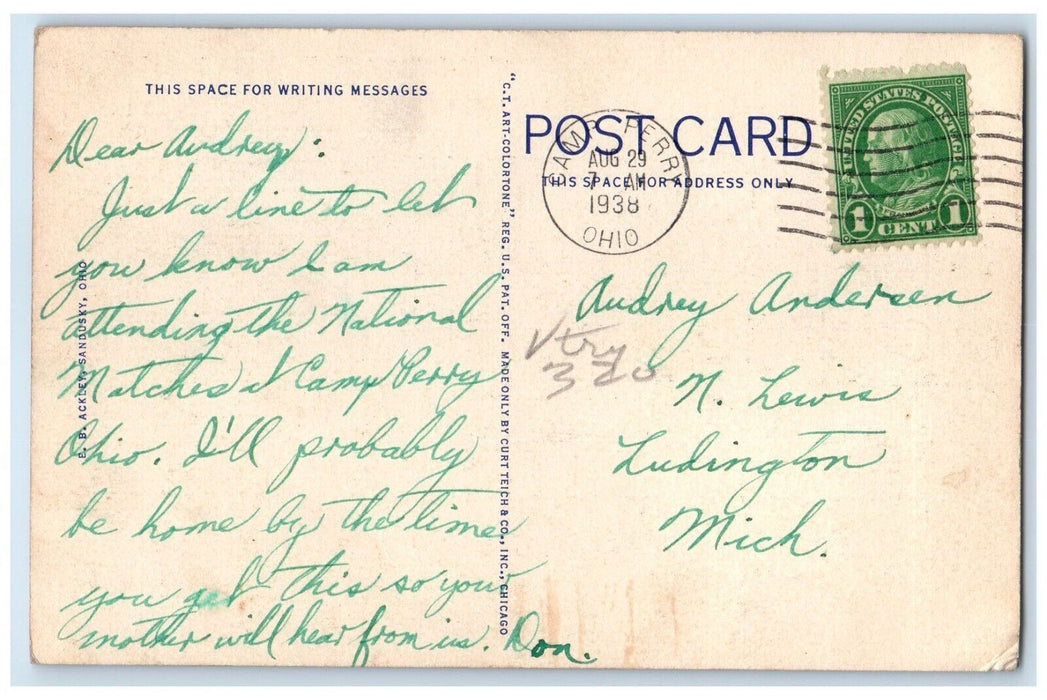 THIS SPACE FOR WRITING MESSAGES
Dear Audrey:
Just a line to let
you know I am
attending the National
Matches at Camp Perry
Ohio. I'll probably
be home by the time
you get this so your
mother will hear from us. Don.
E. B. ACKLEY, SANDUSKY, OHIO
"C.T. ART-COLORTONE" REG. U.S. PAT. OFF. MADE ONLY BY CURT TEICH & CO., INC., CHICAGO
POST CARD
THIS SPACE FOR ADDRESS ONLY
CAMP PERRY
AUG 29
7 AM
1938
OHIO
UNITED STATES POSTAGE
1 CENT 1
Audrey Andersen
Vtry
320
N. Lewis
Ludington
Mich.